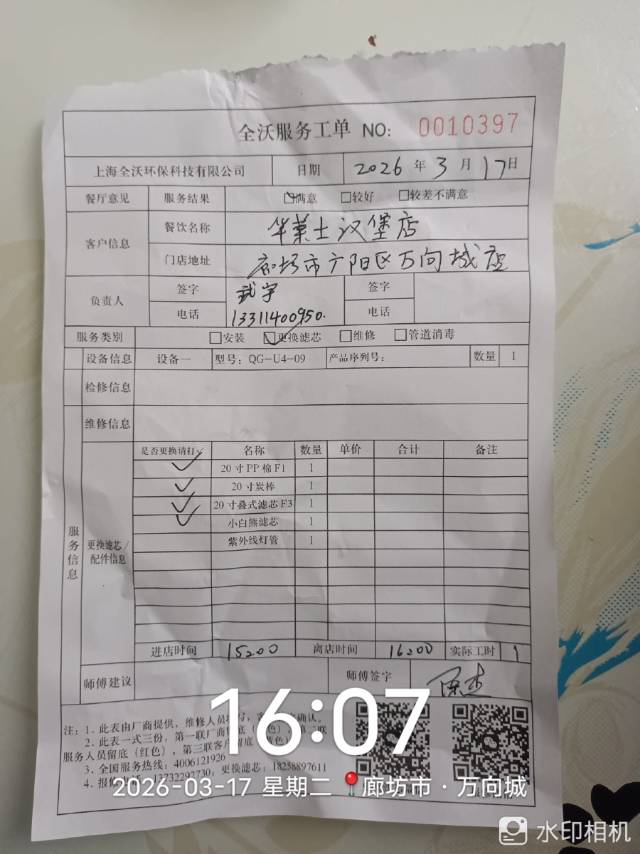 全沃服务工单 NO: 0010397
上海全沃环保科技有限公司 日期 2026 年 3 月 17 日
餐厅意见 服务结果 ☑满意 □较好 □较差不满意
客户信息 餐饮名称 华莱士汉堡店
门店地址 廊坊市广阳区万向城店
负责人 签字 武宇 签字
电话 13311400950. 电话
服务类别 □安装 ☑更换滤芯 □维修 □管道消毒
设备信息 设备一 型号: QG-U4-09 产品序列号: 数量 1
检修信息
维修信息
服务信息 更换滤芯/配件信息
是否更换请打✓ 名称 数量 单价 合计 备注
✓ 20寸PP棉F1 1
✓ 20寸炭棒 1
✓ 20寸叠式滤芯F3 1
✓ 小白熊滤芯 1
紫外线灯管 1
进店时间 15:00 离店时间 16:00 实际工时 1
师傅建议 师傅签字
注: 1、此表由厂商提供, 维修人员填写, 客 确认。
2、此表一式三份, 第一联厂商留底 色), 第二联
服务人员留底 (红色), 第三联客 留底 色)
3、全国服务热线: 4006121926
4、报修 13732292730, 更换滤芯: 18258897611
16:07
2026-03-17 星期二 廊坊市·万向城
水印相机